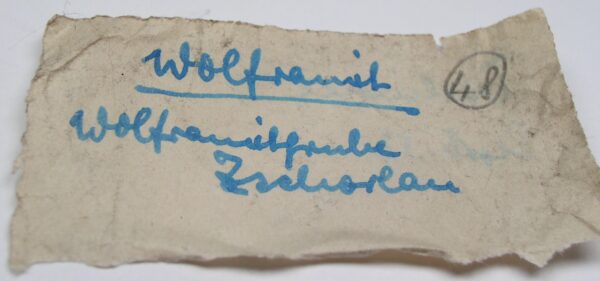 Wolframit
48
Wolframitgrube
Zschorlau